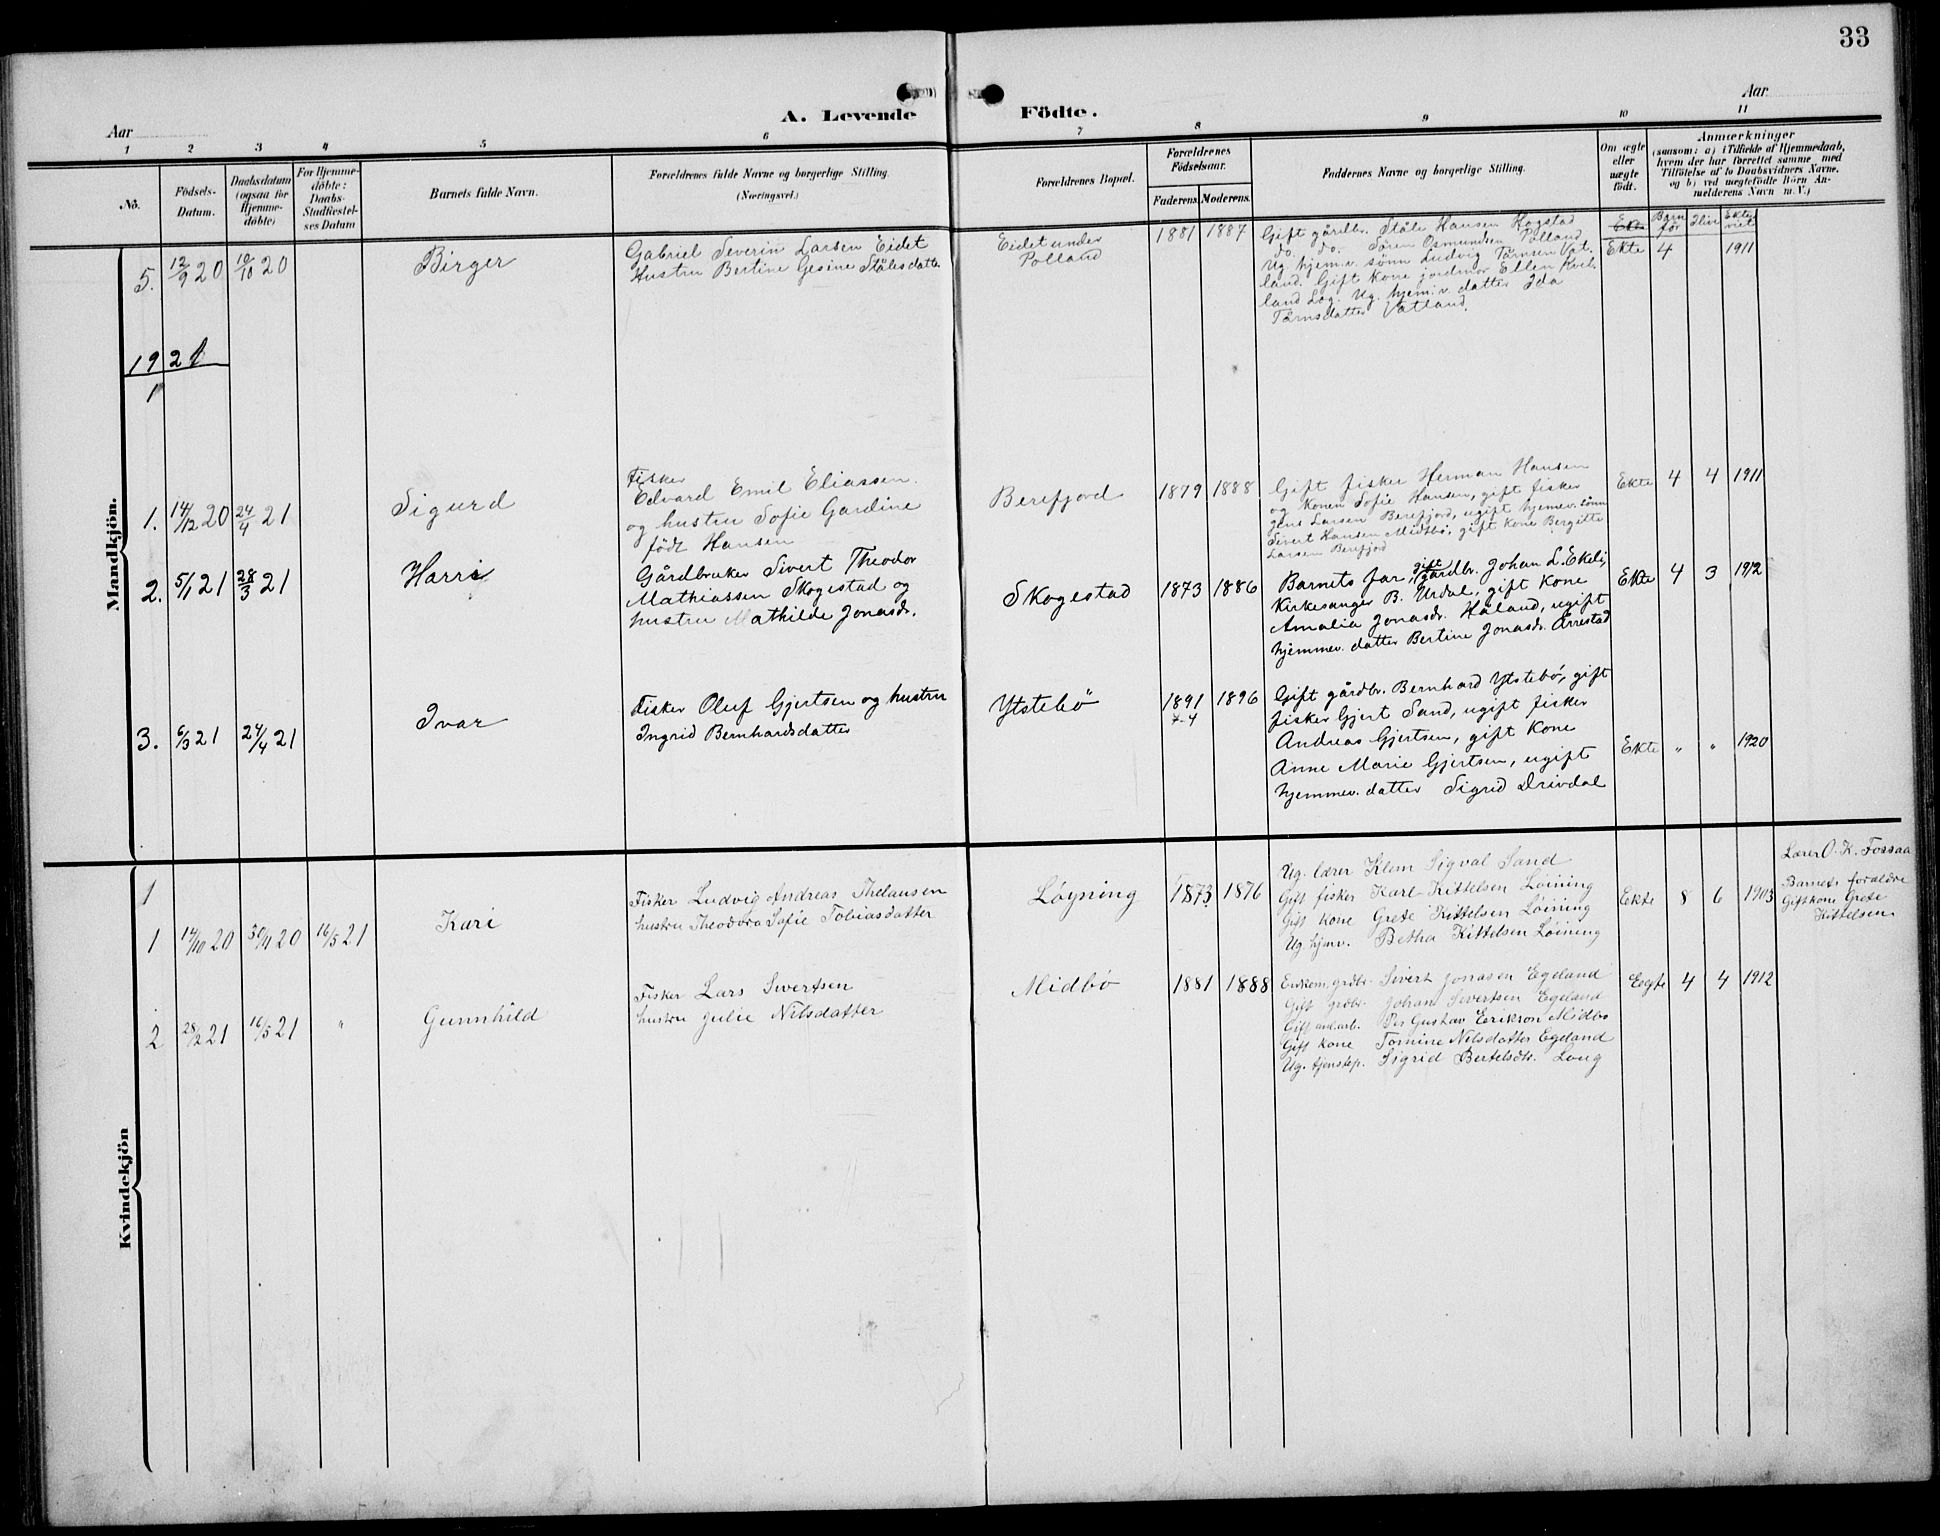 33
Aar
A. Levende Födte.
Aar
1 2 3 4 5 6 7 8 9 10 11
No.
Födsels-
Datum.
Daabsdatum
(ogsaa for
Hjemme-
döbte)
For Hjemme-
döbte:
Daabs-
Stadfæstel-
ses Datum
Barnets fulde Navn.
Forældrenes fulde Navne og borgerlige Stilling.
(Næringsvei.)
Forældrenes Bopæl.
Forældrenes
Födselsaar.
Faderens. Moderens.
Faddernes Navne og borgerlige Stilling.
Om ægte
eller
uægte
födt.
Anmærkninger
(saasom: a) i Tilfælde af Hjemmedaab,
hvem der har forrettet samme, med
Tilföielse af to Daabsvidners Navne,
og b) ved uægtefödte Börn An-
melderens Navn m. V.)
Mandkjön.
Ekte Barn før Ilive Ekte viet
5. 12/9 20 10/10 20
Birger
Gabriel Severin Larsen Eidet
Hustru Bertine Gesine Ståles datter
Eidet under
Polland
1881 1887
Gift gårdbr. Ståle Hansen Høgstad
do. do. Sören Osmundsen Polland
Ug. hjem.v. sönn Ludvig Törnsen Vat-
land. Gift Kone jordmor Ellen Kvel-
land Log. Ug. hjem.v. datter Ida
Törnsdatter Vatland.
Ekte 4 1911
1921
1
1. 14/12 20 24/4 21
Sigurd
Fisker
Edvard Emil Eliassen.
og hustru Sofie Gardine
född Hansen
Berefjord
1879 1888
Gift fisker Herman Hansen
og Konen Sofie Hansen, gift fisker
Jens Larsen Berefjord, ugift hjemmev. sönn
Sivert Hansen Midtbö, gift Kone Bergitte
Larsen Berefjord
Ekte 4 4 1911
2. 5/1 21 28/3 21
Harri
Gårdbruker Sivert Theodor
Mathiassen Skogestad og
hustru Mathilde Jonasdr.
Skogestad
1873 1886
Barnets far, gift gårdbr. Johan L. Ekeli,
Kirkesanger B. Urdal, gift Kone
Amalia Jonasdr. Håland, ugift
hjemmev. datter Bertine Jonasdr. Årrestad
Ekte 4 3 1912
3. 6/3 21 24/4 21
Ivar
Fisker Oluf Gjertsen og hustru
Ingrid Bernhardsdatter
Ytstebö
1891 1896
Gift gårdbr. Bernhard Ytstebö, gift
fisker Gjert Sand, ugift fisker
Andreas Gjertsen, gift Kone
Anne Marie Gjertsen, ugift
hjemmev. datter Sigrid Drivdal
Ekte " " 1920
Kvindekjön
1
1 14/10 20 30/11 20 16/5 21
Kari
Fisker Ludvig Andreas Thelausen
hustru Theodora Sofie Tobiasdatter
Løyning
1873 1876
Ug. lærer Klem Sigval Sand
Gift fisker Karl Kittelsen Löining
Gift Kone Grete Kittelsen Löining
Ug. hjmv. Betha Kittelsen Löining
Ekte 8 6 1903
Lærer O. K. Fossaa
Barnets forældre
Gift kone Grete
Kittelsen
2 28/2 21 16/5 21 "
Gunnhild
Fisker Lars Sivertsen
hustru Julie Nilsdatter
Midbö
1881 1888
Enkem. grdbr. Sivert Jonasen Egeland
Gift grdbr. Johan Sivertsen Egeland
Gift anl.arb. Per Gustav Eerikson Midbö
Gift Kone Tomine Nilsdatter Egeland
Ug. tjenstep. Sigrid Bertelsdtr. Laug
Egte 4 4 1912